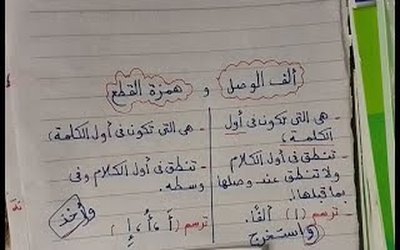 ألف الوصل و همزة القطع
- هى التى تكون فى أول الكلمة)
- تنطق فى أول الكلام
ولا تنطق عند وصلها
بما قبلها.
ترسم (ا) ألفًا.
واستخرج
- هى التى تكون فى أول الكلمة)
- تنطق فى أول الكلام وفى
وسطه.
وأخذ
ترسم (أَ، أُ، إِ)